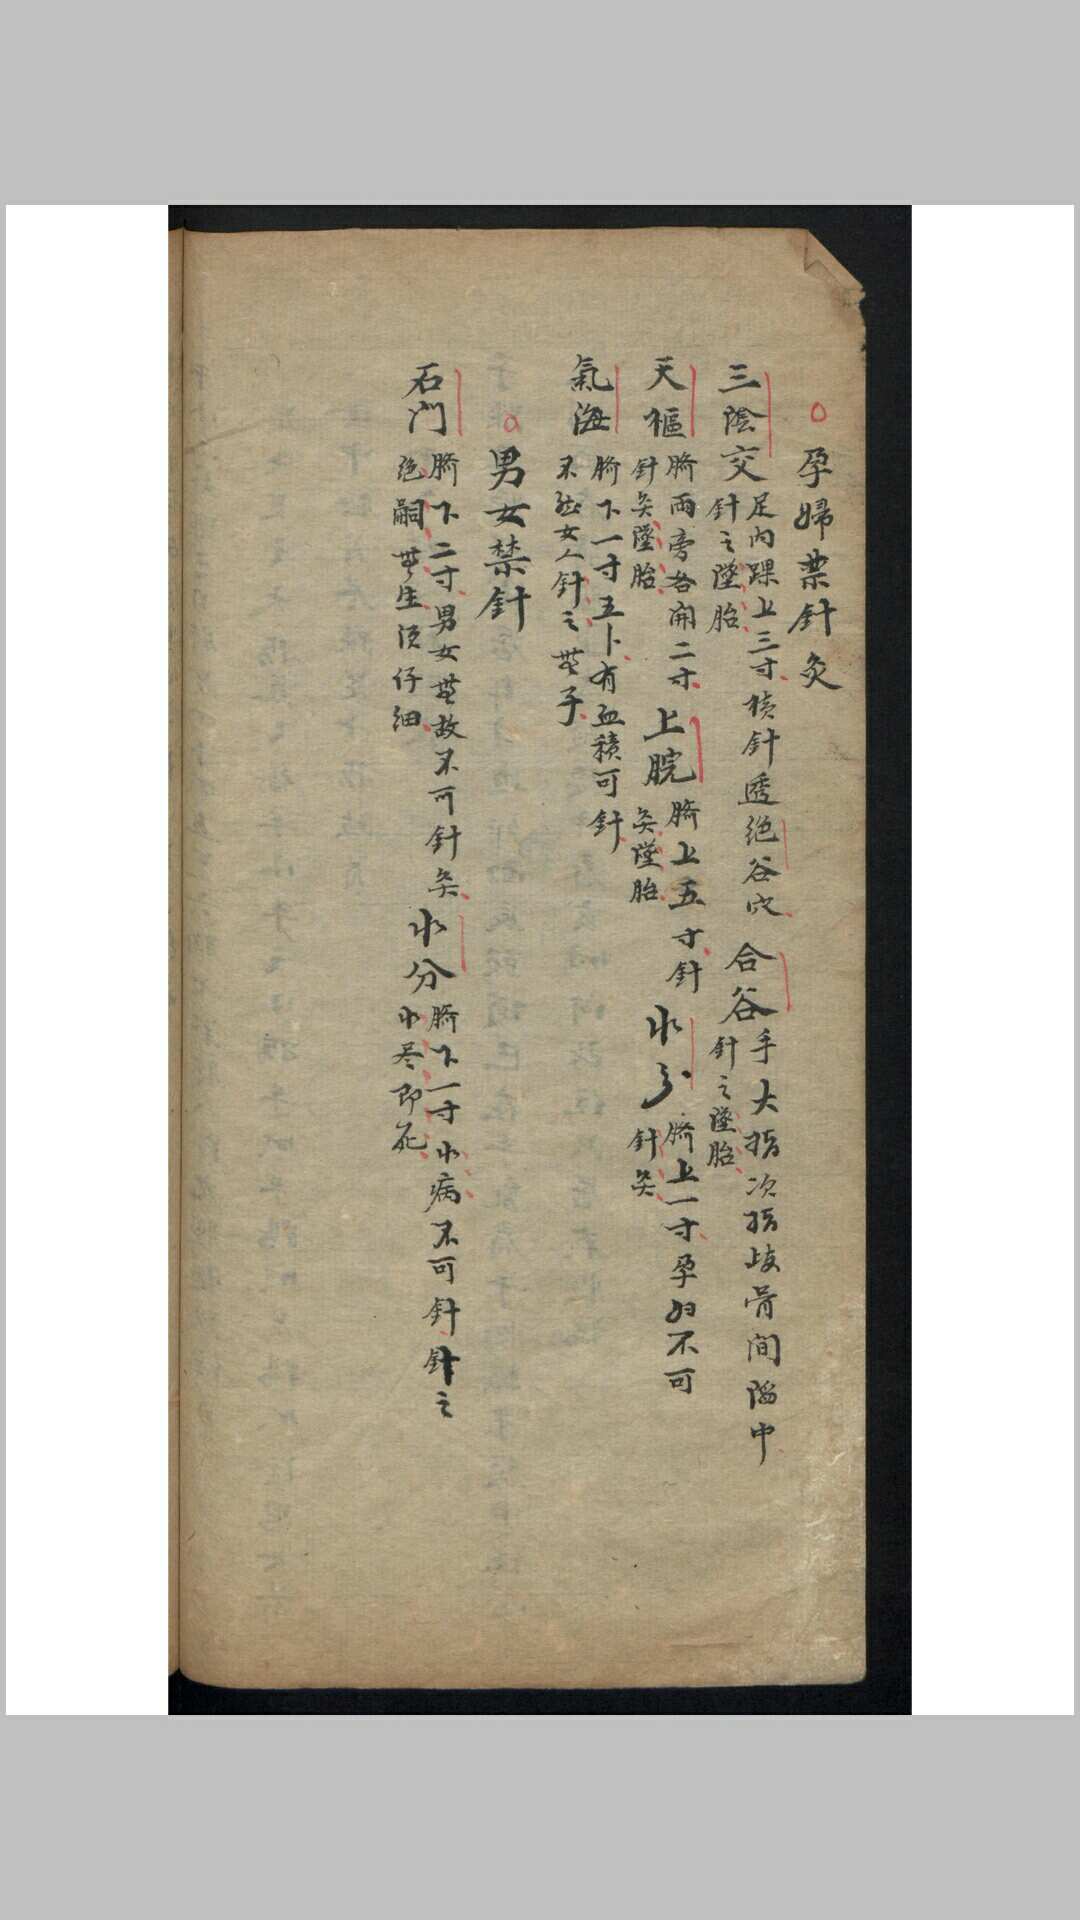 孕婦禁針灸
三陰交 足內踝上三寸橫針透絕谷穴 針之墜胎 合谷 手大指次指歧骨間陷中 針之墜胎
天樞 臍兩旁各開二寸 針灸墜胎 上脘 臍上五寸針灸墜胎 水分 臍上一寸孕妇不可針灸
氣海 臍下一寸五卜有血積可針 不然女人針之無子
男女禁針
石門 臍下二寸男女無故不可針灸 絕嗣無生須仔細 水分 臍下一寸水病不可針針之水尽即死